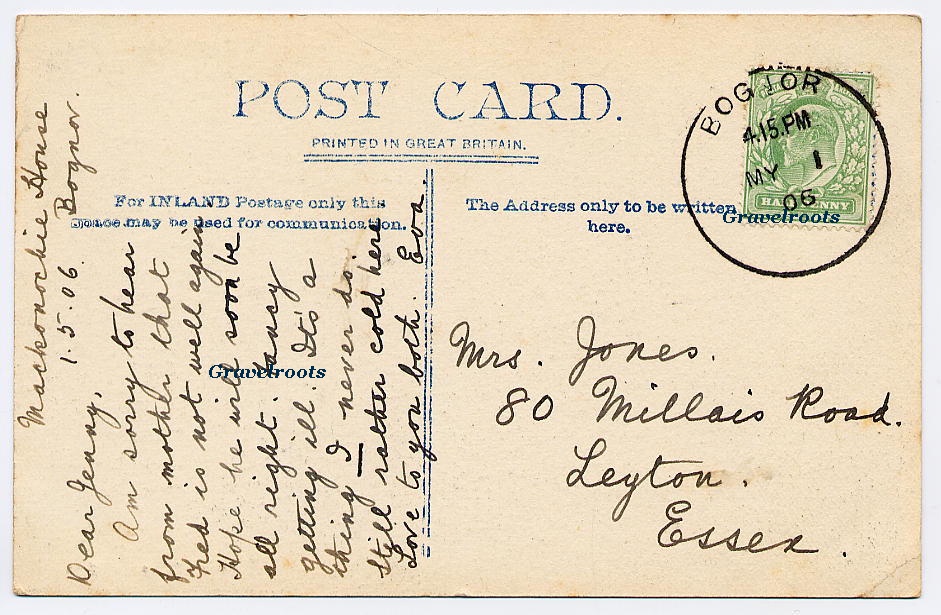 POST CARD.
PRINTED IN GREAT BRITAIN.
For INLAND Postage only this
space may be used for communication.
The Address only to be written
here.
BOGNOR
4.15.PM
MY 1
06
HALFPENNY
Gravelroots
Mackonochie House
1.5.06. Bognor.
Dear Jenny,
Am sorry to hear
from mother that
Fred is not well again
Hope he will soon be
all right. Fancy
getting ill. It's a
thing I never do.
Still rather cold here
Love to you both. Eva
Gravelroots
Mrs. Jones.
80 Millais Road.
Leyton.
Essex.